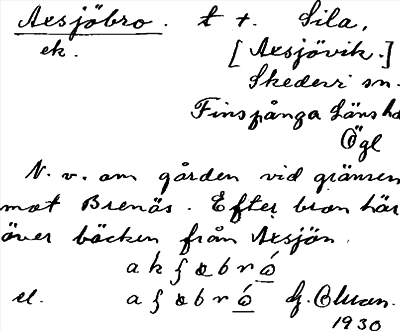 Axsjöbro. t +. Sila,
ek. [Axsjövik.]
Skedevi sn.
Finspånga Läns hd
Ögl
N. v. om gården vid gränsen
mot Brenäs. Efter bron här
över bäcken från Axsjön.
el. G. Ekman.
1930